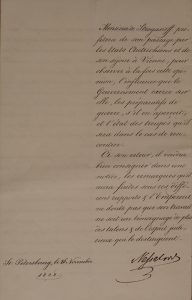 Monsieur Stroganoff pro-
fitera de son passage par
les Etats Autrichiens et de
son séjour à Vienne, pour
observer à la fois cette opi-
nion, l'influence que le
Gouvernement exerce sur
elle, les préparatifs de
guerre, s'il en apercevait,
et l'état des troupes qu'il
sera dans le cas de ren-
contrer.
A son retour, il voudra
bien consigner dans une
notice, les remarques qu'il
aura faites sous ces diffé-
rens rapports & l'Empereur
ne doute pas que son travail
ne soit un témoignage de plus
des talens & de l'esprit judi-
cieux qui le distinguent.
Nesselrode
St. Pétersbourg, le 16 Novembre